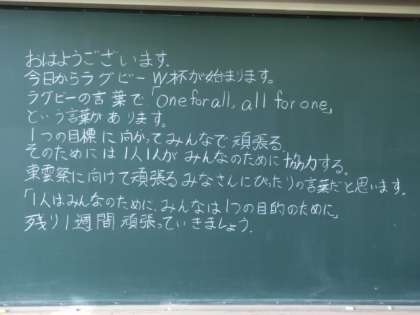 おはようございます.
今日からラグビーW杯が始まります。
ラグビーの言葉で「One for all, all for one」
という言葉があります。
1つの目標に向かってみんなで頑張る.
そのためには1人1人がみんなのために協力する。
東雲祭に向けて頑張るみなさんにぴったりの言葉だと思います.
「1人はみんなのために、みんなは1つの目的のために」
残り1週間頑張っていきましょう.